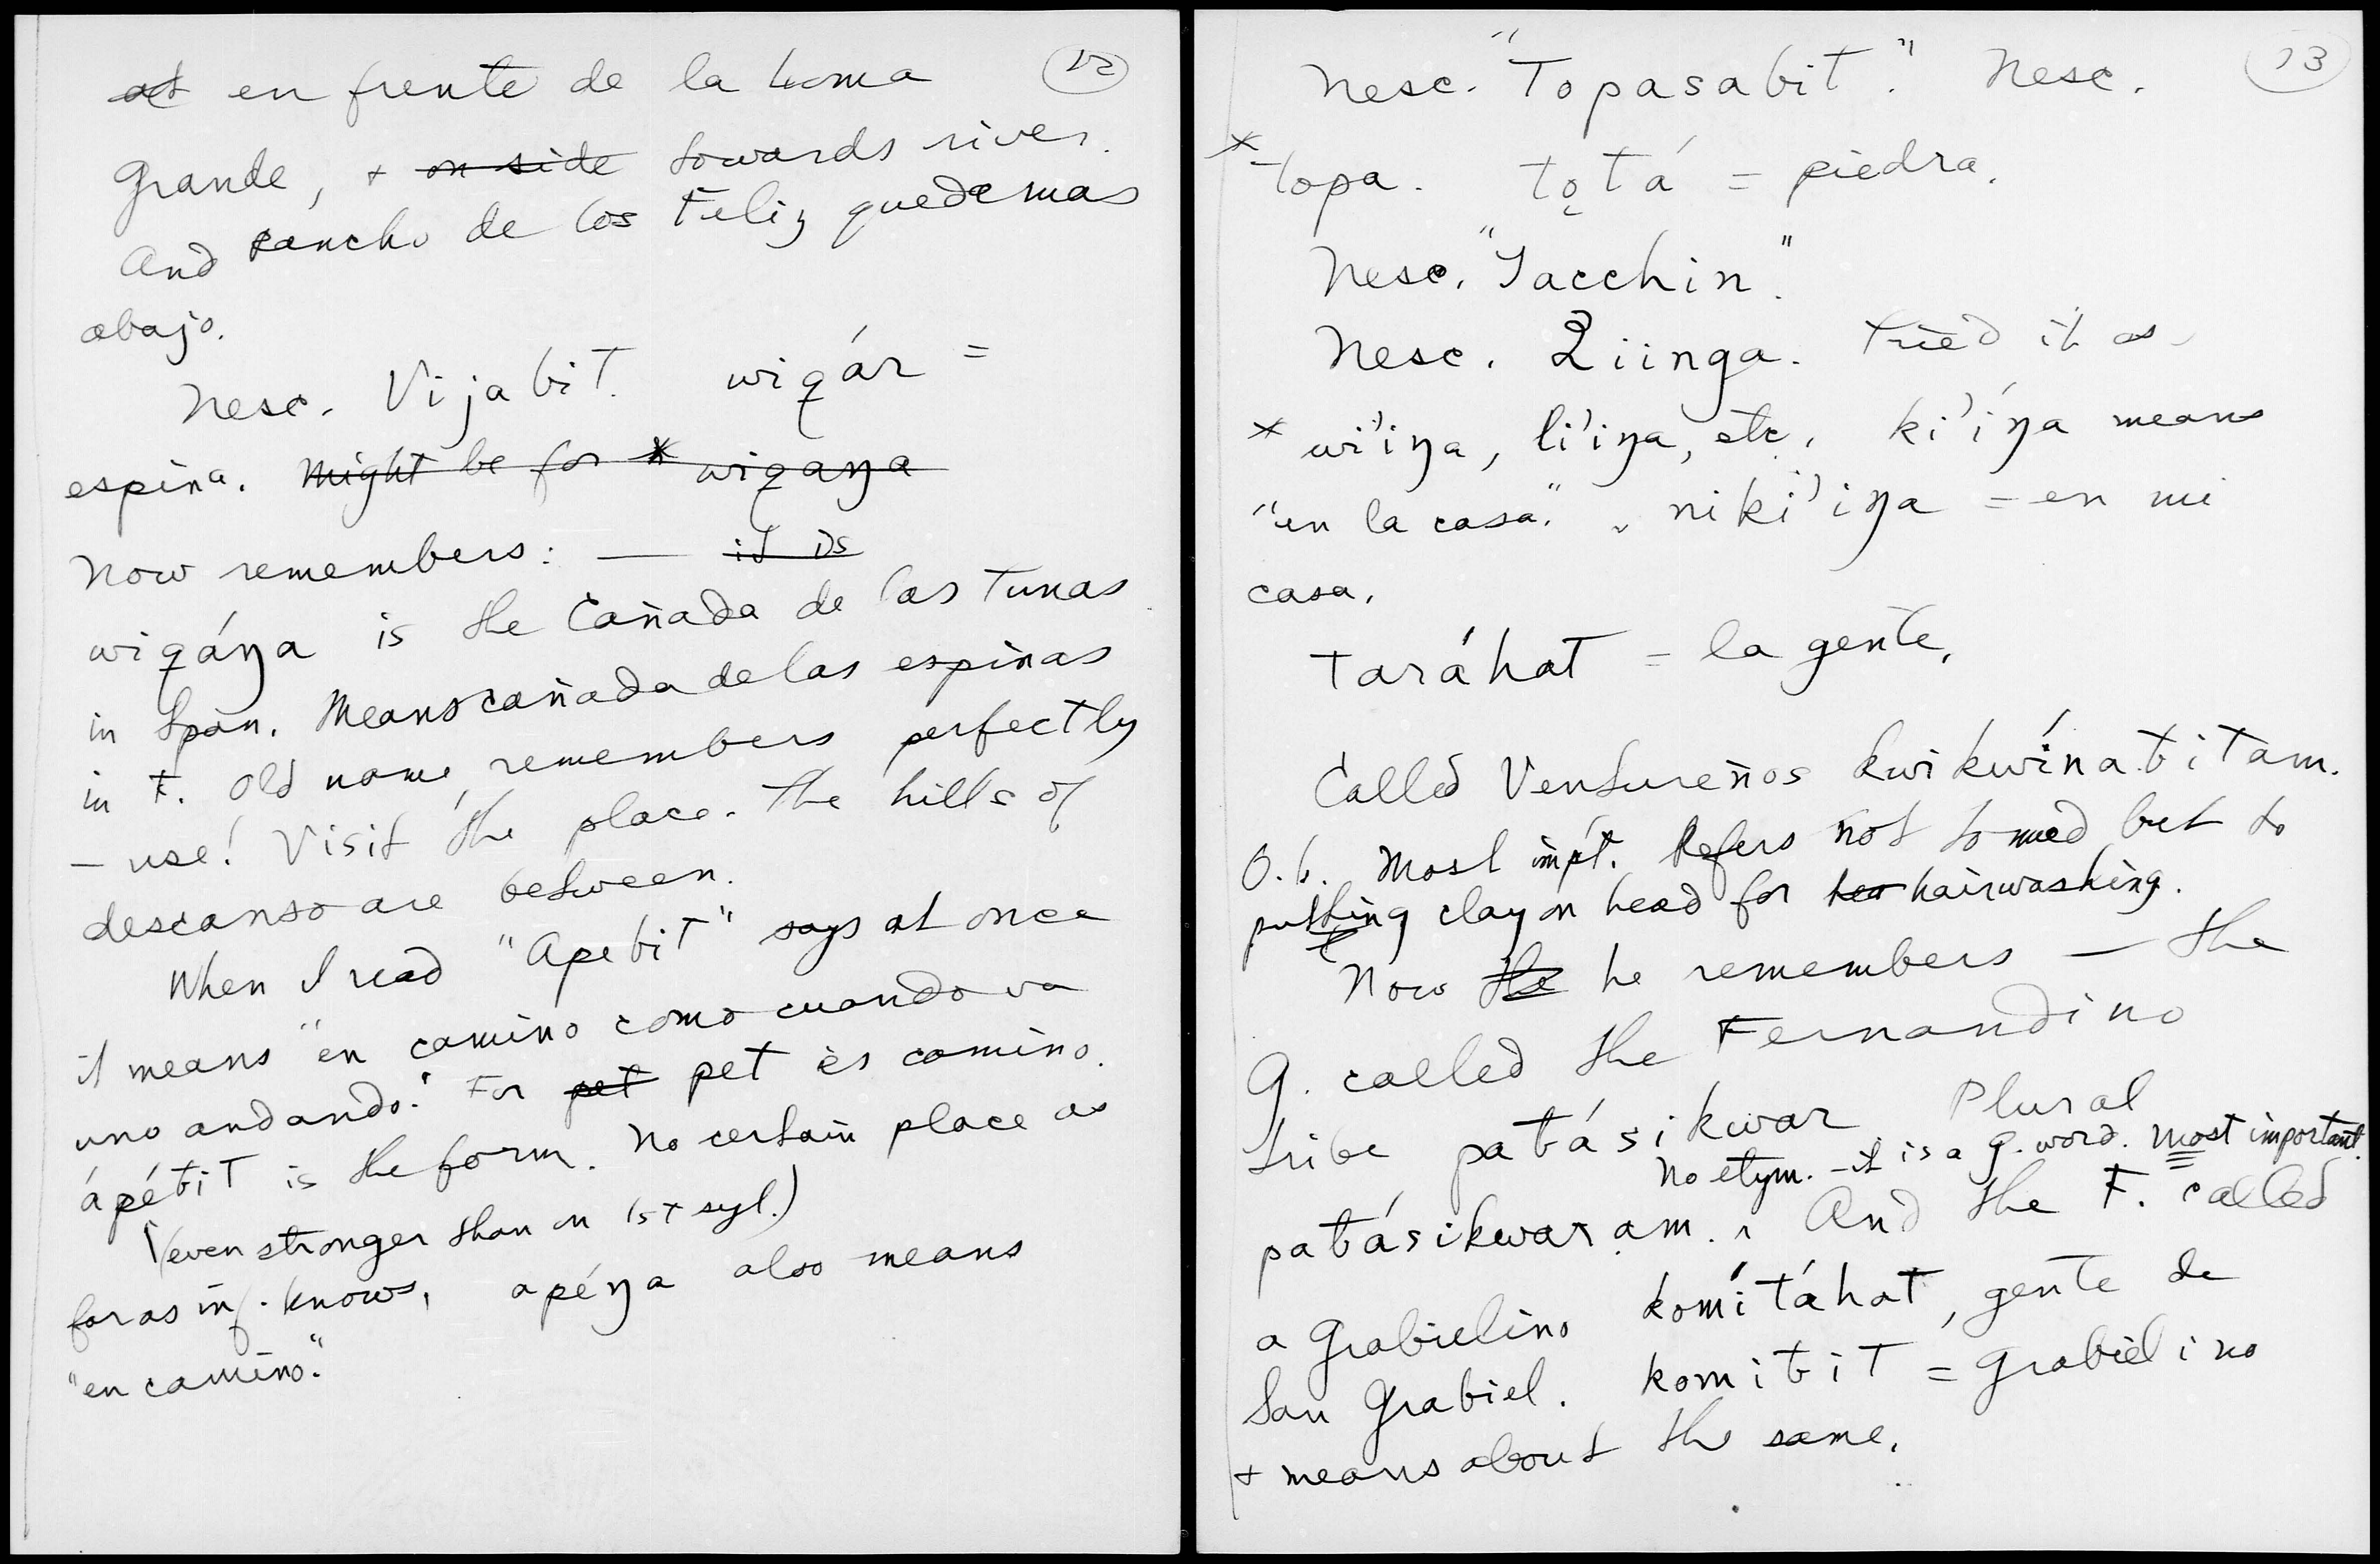 12
en frente de la Loma
Grande, + on side towards river.
And rancho de los Feliz quede mas
abajo.
Nesc. Vijabit. wiqár =
espina. Might be for * wiqaŋa
Now remembers: — it is
wiqáŋa is the Cañada de las Tunas
in Span. Means cañada de las espinas
in F. Old name, remembers perfectly
— use! Visit the place. The hills of
descanso are between.
When I read "Apebit" says at once
it means "en camino como cuando va
uno andando." For pet pet es camino.
ápéƀit is the form. No certain place as
(even stronger than on 1st syl.)
far as inf. knows. apéŋa also means
"en camino."
13
Nesc. "Topasabit". Nesc.
*topa. tǫtá = piedra.
Nesc. "Yacchin".
Nesc. Quiinga. Tried it as
* wi'iŋa, li'iŋa, etc. ki'íŋa means
"en la casa." niki'iŋa = en mi
casa.
taráhat = la gente.
Called Ventureños kwikwínaƀitam.
O.k. Most imp't. Refers not to mud but to
putting clay on head for hairwashing.
Now the he remembers — the
G. called the Fernandino
tribe paƀásikwar Plural
No etym. - it is a G. word. Most important.
paƀásikwaram. And the F. called
a Grabielino komítáhat, gente de
San Grabiel. komiƀit = Grabielino
+ means about the same.